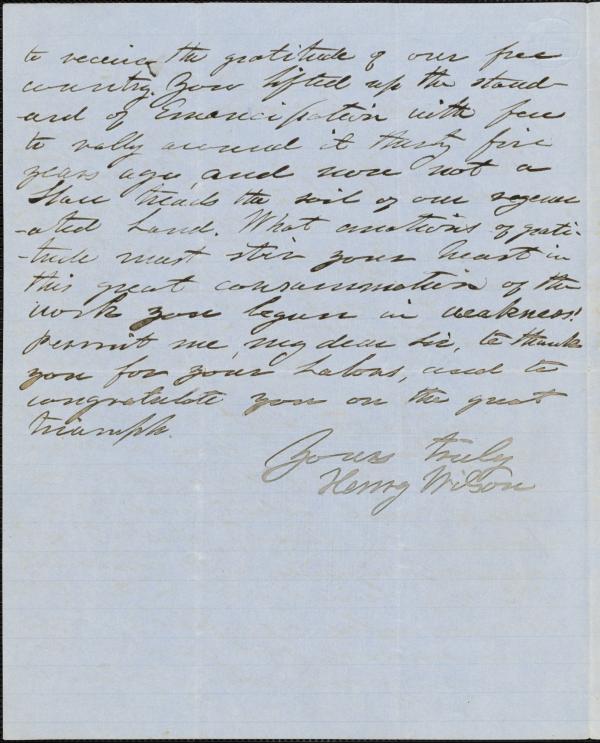 to receive the gratitude of our free
country. You lifted up the stand-
ard of Emancipation with few
to rally around it thirty five
years ago, and now not a
Slave treads the soil of our regener
-ated Land. What emotions of grati-
-tude must stir your heart in
this great consummation of the
work you begun in weakness!
Permit me, my dear Sir, to thank
you for your Labors, and to
congratulate you on the great
triumph.
Yours truly
Henry Wilson